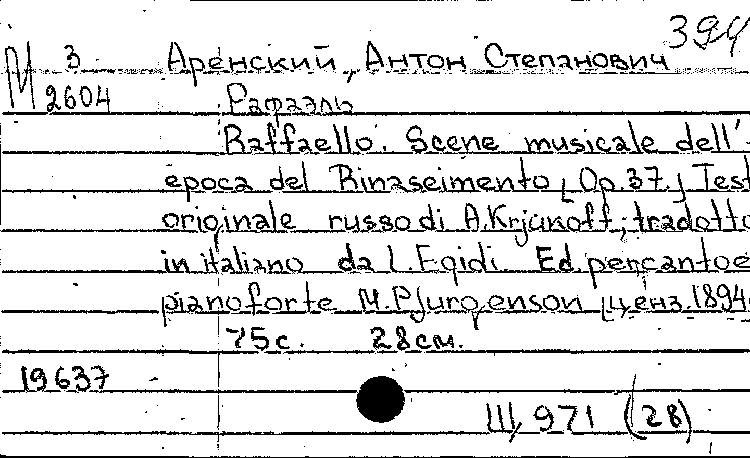 394
М 3 Аренский, Антон Степанович
2604 Рафаэль
Raffaello. Scene musicale dell'
epoca del Rinascimento [Op.37.] Test
originale russo di A.Krjukoff, tradotto
in italiano da L.Egidi. Ed. per canto e
pianoforte M.P.Jurgenson [ценз.1894
75с. 28см.
19637
Ш, 971 (28)